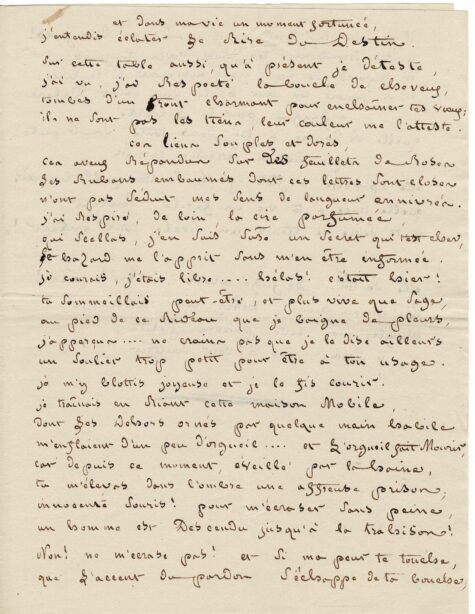 et dans ma vie un moment fortunée,
j'entendis éclater le Rire du Destin.
Sur cette table aussi, qu'à présent je déteste,
j'ai vu, j'ai Respecté la boucle de cheveux,
tombés d'un front charmant pour enchaîner tes vœux;
ils ne sont pas les tiens, leur couleur me l'atteste.
ces liens souples et dorés,
ces aveux Répandus sur des feuillets de Roses
des Rubans embaumés dont ces lettres sont closes
n'ont pas séduit mes sens de langueur ennivrés.
j'ai Respiré, de loin, la cire parfumée
qui scella, j'en suis sûre un secret qui t'est cher,
le hazard me l'apprit sans m'en être informée.
je courais, j'étais libre .... hélas! c'était hier!
tu sommeillais peut-être, et plus vive que sage,
au pied de ce Rideau que je baigne de pleurs,
j'apperçus .... ne crains pas que je le dise ailleurs
un soulier trop petit pour être à ton usage.
je m'y blottis joyeuse et je le fis courir.
je traînais en Riant cette maison Mobile,
dont les Dehors ornés par quelque main habile
m'enflaient d'un peu d'orgueil .... et l'orgueil fait Mourir,
car depuis ce moment, éveillé par la haine,
tu m'élevas dans l'ombre une affreuse prison;
innocente souris! pour m'écraser sans peine,
un homme est Descendu jusqu'à la trahison!
Non! ne m'écrase pas! et si ma peur te touche,
que l'accent du pardon s'échappe de ta bouche,